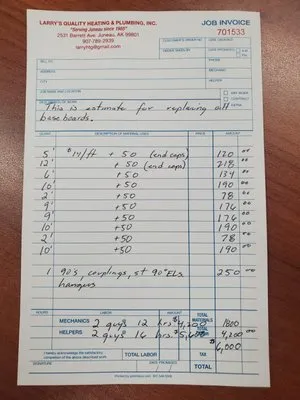 LARRY'S QUALITY HEATING & PLUMBING, INC.
"Serving Juneau since 1985"
2531 Barrett Ave. Juneau, AK 99801
907-789-2939
larryhtg@gmail.com
JOB INVOICE
701533
CUSTOMER'S ORDER NO.
DATE ORDERED
ORDER TAKEN BY
DATE PROMISED
BILL TO
PHONE
ADDRESS
MECHANIC
CITY
HELPER
JOB NAME AND LOCATION
DAY WORK
CONTRACT
EXTRA
DESCRIPTION OF WORK
This is estimate for replacing all
baseboards.
QUANT. DESCRIPTION OF MATERIAL USED PRICE AMOUNT
5' $14/ft + 50 (end caps) 120 00
12' +50 (end caps) 218 00
6' +50 134 00
10' +50 190 00
2' +50 78 00
9' +50 176 00
9' +50 176 00
10' +50 190 00
2' +50 78 00
10' +50 190
1 90's, couplings, st 90° ELs 250 00
hangers
HOURS LABOR AMOUNT
MECHANICS 2 guys 12 hrs
TOTAL MATERIALS 1800
HELPERS 2 guys 16 hrs
TOTAL LABOR 4,200 00
$6,000
I hereby acknowledge the satisfactory
completion of the above described work.
TOTAL LABOR
TAX
SIGNATURE
DATE COMPLETED
TOTAL